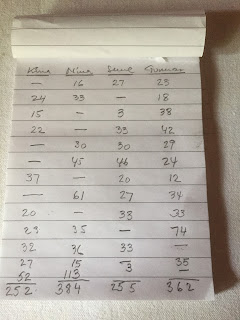 Nina Sune Gunnar
— 16 27 23
24 33 — 18
15 — 3 38
22 — 33 42
— 30 30 29
— 45 46 24
37 — 20 12
— 61 27 34
20 — 33 33
23 35 — 74
32 36 33 —
27 15 — 35
52 113 3 —
252 384 255 362